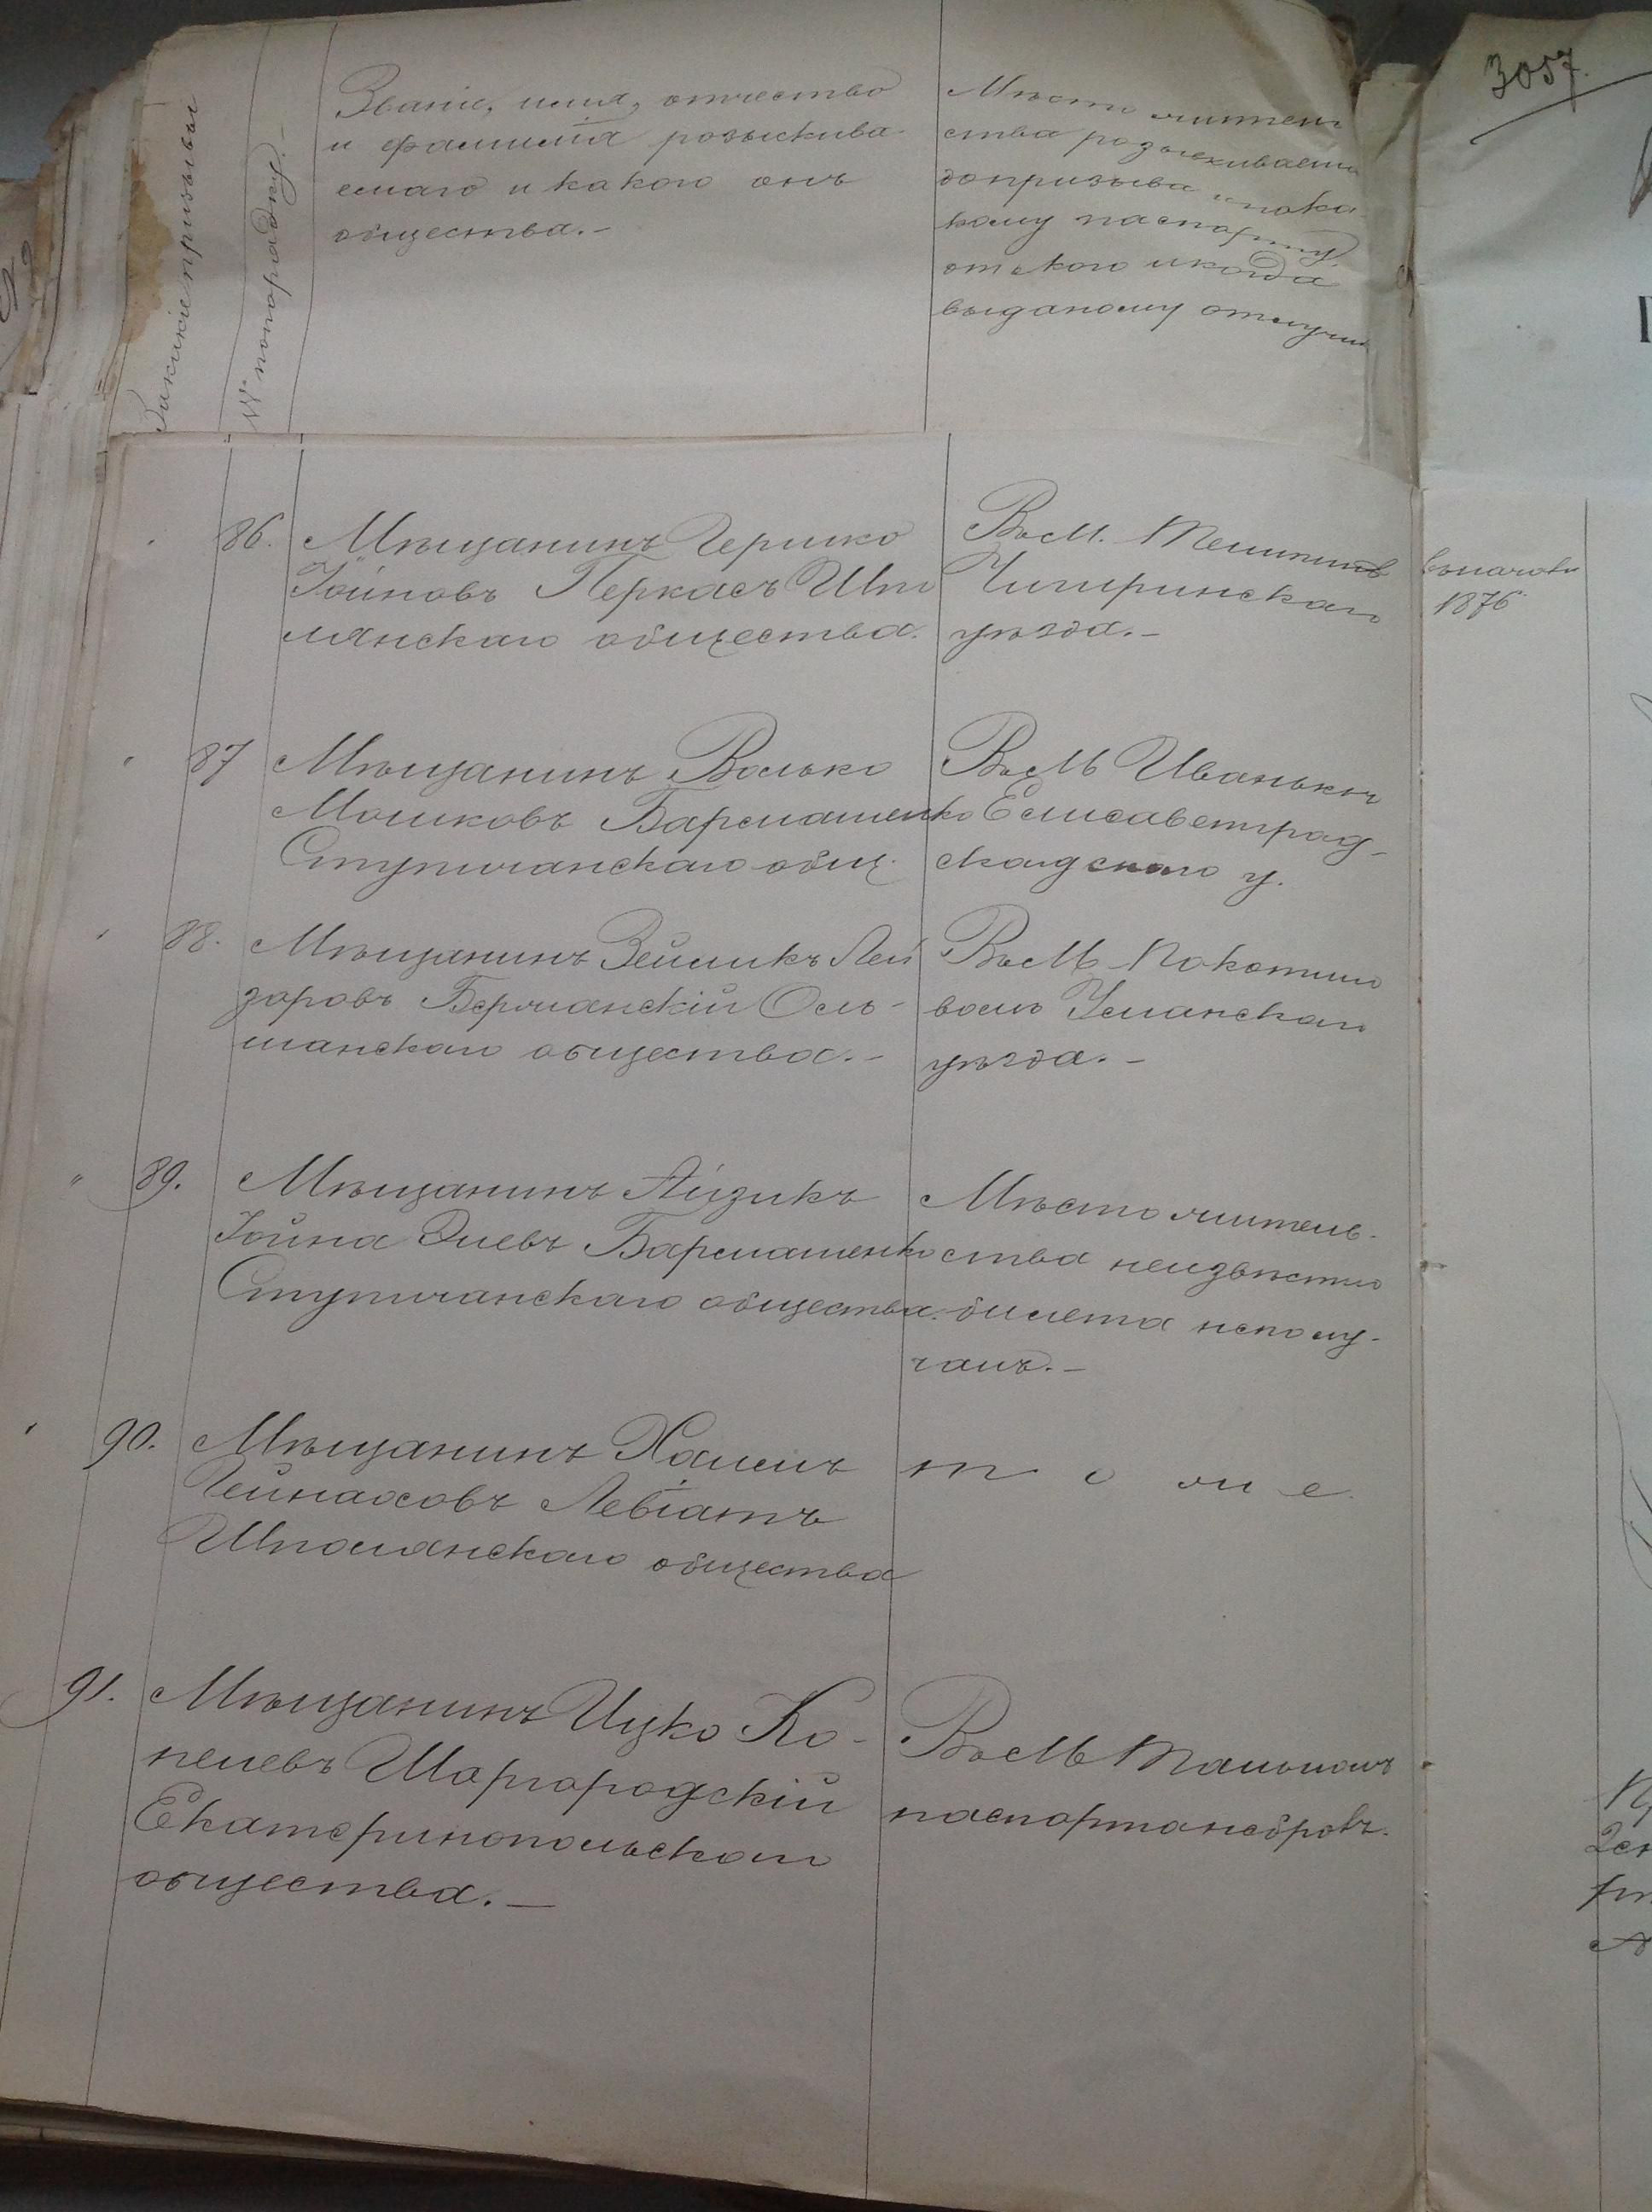 3057.
Какiе призывы
№ попорядку.
Званіе, имя, отчество
и фамилія розыскива-
емаго и какого онъ
общества.-
Мѣсто житель
ства розыскиваемаго
допризыва и пока-
кому паспорту
от кого и когда
выданому отлучил
86.
Мѣщанинъ Гершко
Іойновъ Перкасъ Шпо
лянскаго общества.
Въ М.
Чигиринскаго
уѣзда.-
въ началѣ
1876
87
Мѣщанинъ Волько
Мошковъ Бармашенко
Ступичанскаго общ.
Въ М Иванькѣ
Елисаветград-
скаго у.
88.
Мѣщанинъ Зейликъ Лей
заровъ Берманскій Оль-
шанскаго общества.-
Въ М Покотило
вомъ Уманскаго
уѣзда.-
89.
Мѣщанинъ Айзикъ
Іойна Элевъ Бармашенко
Ступичанскаго общества.
Мѣсто житель-
ства неизвѣстно
билета неполу-
чалъ.-
90.
Мѣщанинъ Хаимъ
Пейнаховъ Левіатъ
Шполянскаго общества
тоже.
91.
Мѣщанинъ Ицко Ко-
пелевъ Шаргородскій
Екатеринопольскаго
общества.-
Въ М Тальномъ
паспорта небралъ.